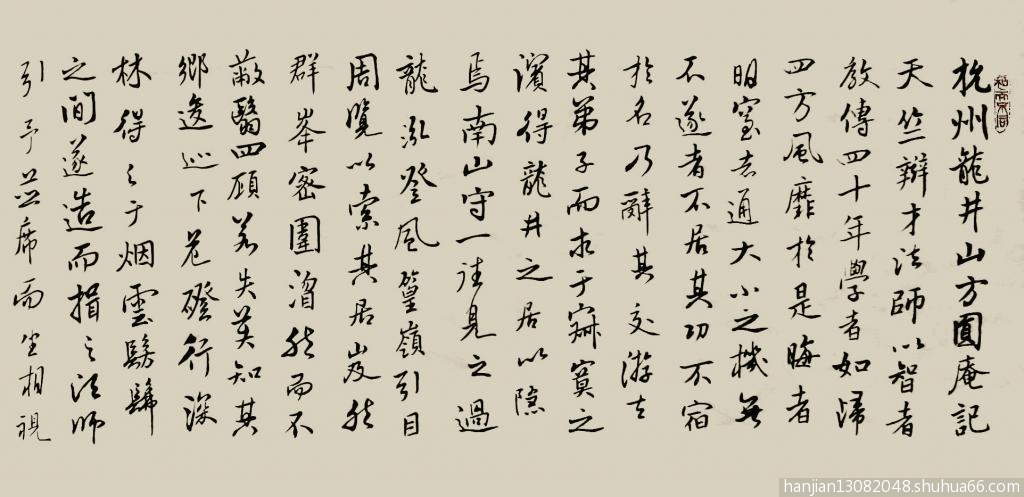 杭州龍井山方圓庵記
天竺辯才法師以智者
教傳四十年學者如歸
四方風靡於是晦者
明窒者通大小之機無
不遂者不居其功不宿
於名乃辭其交游去
其弟子而求于寂寞之
濱得龍井之居以隱
焉南山守一往見之過
龍泓登風篁嶺引目
周覽以索其居岌然
群峯密圍溜然而不
蔽翳四顧若失莫知其
鄉逡巡下危磴行深
林得之于烟雲髣髴
之間遂造而揖之法師
引予並席而坐相視
hanjian13082048.shuhua66.com